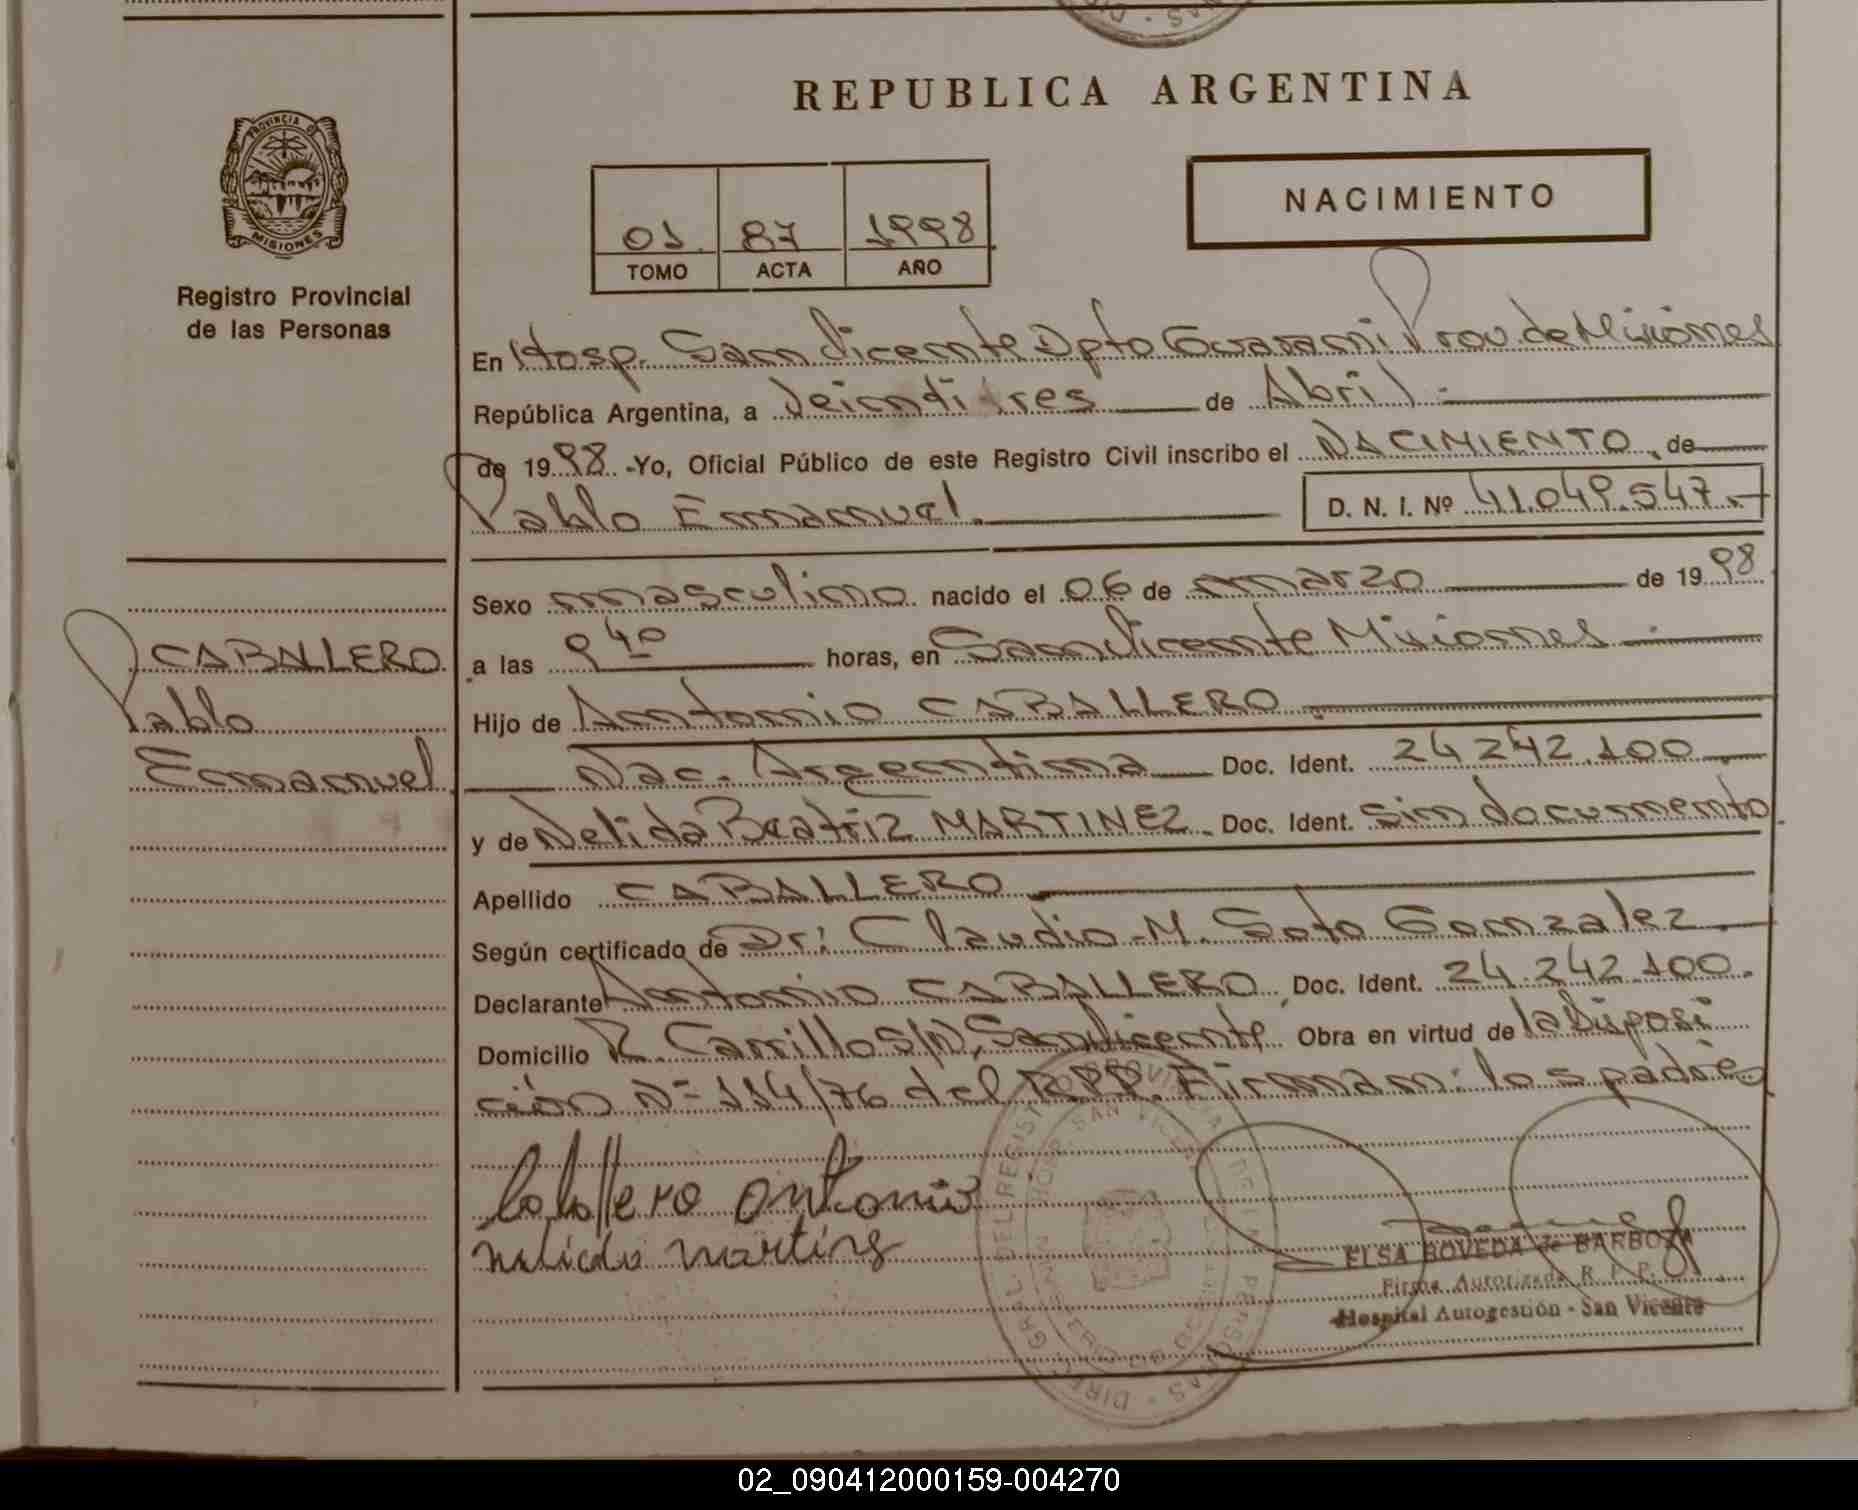 REPUBLICA ARGENTINA
PROVINCIA DE
MISIONES
Registro Provincial
de las Personas
01 87 1998
TOMO ACTA AÑO
NACIMIENTO
En Hosp. San Vicente Dpto Guarani Prov. de Misiones
República Argentina, a Veintitres de Abril.-
de 1998 -Yo, Oficial Público de este Registro Civil inscribo el NACIMIENTO, de
Pablo Emanuel. D. N. I. Nº 41.049.547.-
Sexo masculino nacido el 06 de marzo de 1998
a las 9 40 horas, en San Vicente Misiones.-
Hijo de Antonio CABALLERO.
Nac. Argentina Doc. Ident. 24 242.100
y de Nelida Beatriz MARTINEZ. Doc. Ident. sin documento
Apellido CABALLERO
Según certificado de Dr: Claudio M. Soto Gonzalez.
Declarante Antonio CABALLERO. Doc. Ident. 24.242.100.
Domicilio R. Carrillo S/N, San Vicente. Obra en virtud de la Disposi
ción Nº 114/76 del R.P.P. Firman: los padres
CABALLERO
Pablo
Emanuel
Caballero Antonio
ELSA BOVEDA de BARBOZA
Firma Autorizada R. P. P.
Hospital Autogestión - San Vicente
02_090412000159-004270